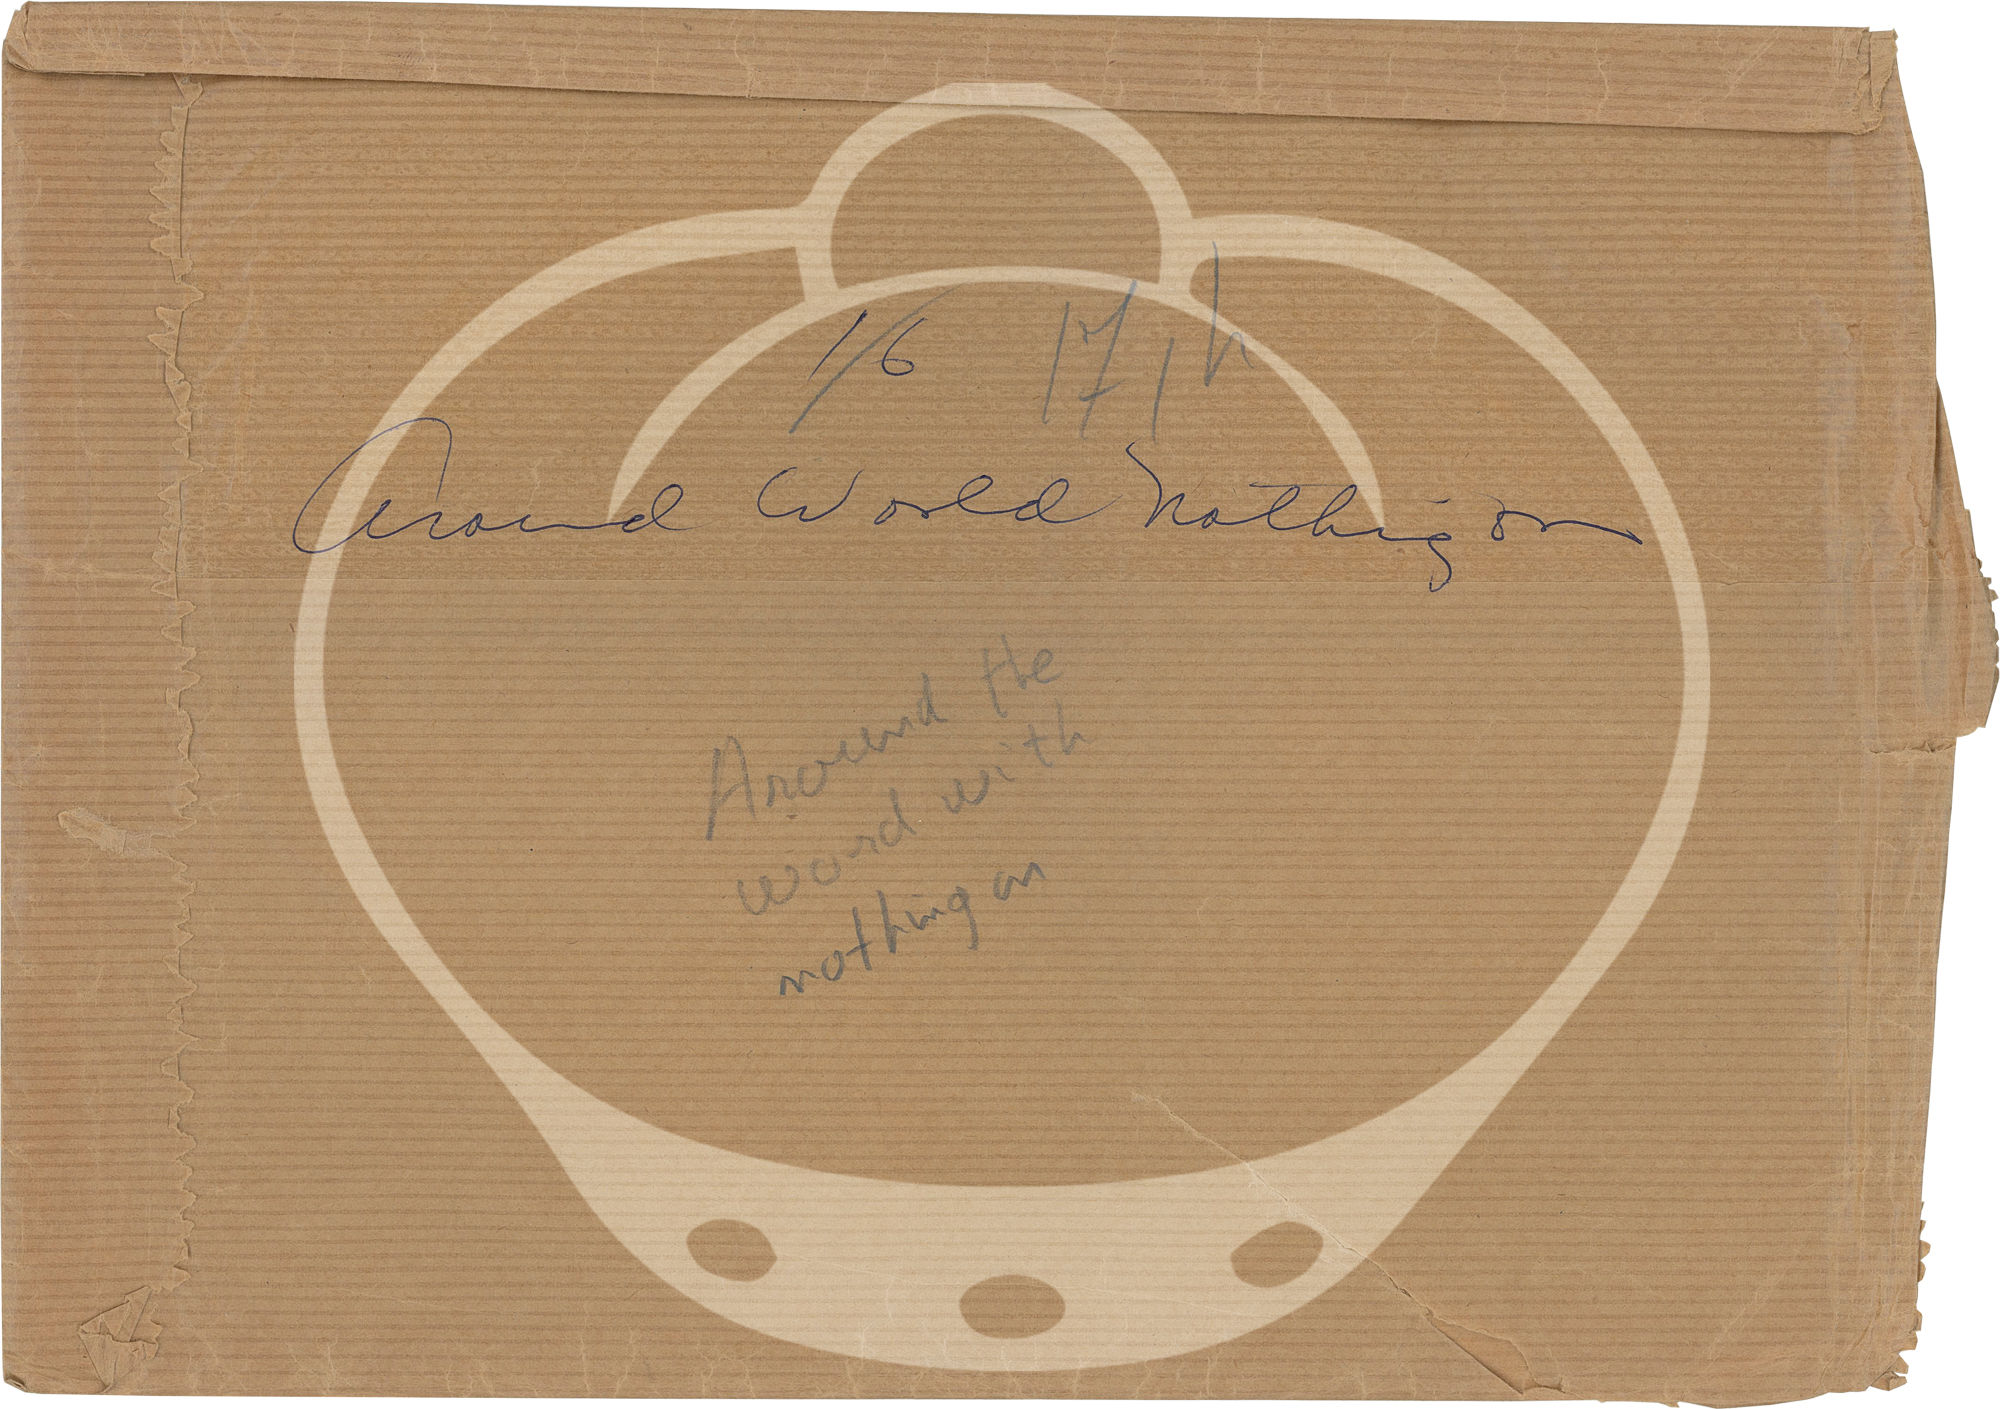 1/6
Around World Nothing on
Around the
word with
nothing on